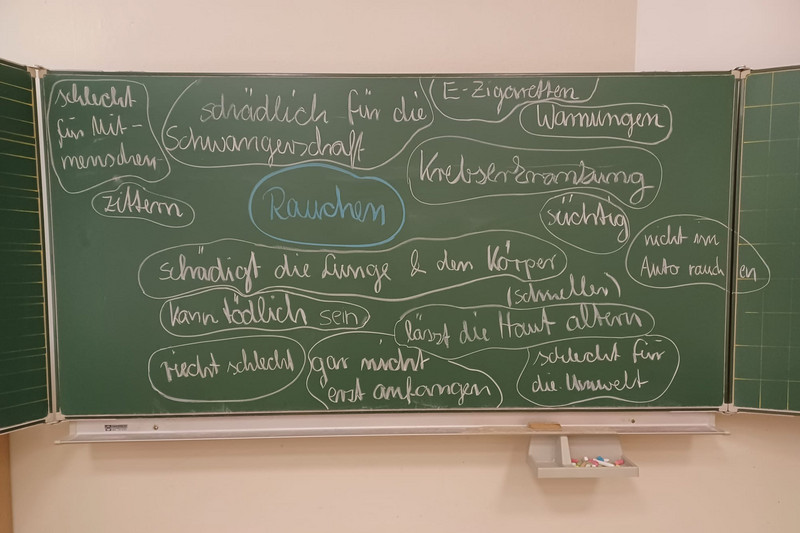 schlecht
für Mit-
menschen
schädlich für die
Schwangerschaft
E-Zigaretten
Warnungen
Krebserkrankung
zittern
Rauchen
süchtig
nicht im
Auto rauchen
schädigt die Lunge & den Körper
(schneller)
kann tödlich sein
lässt die Haut altern
riecht schlecht
gar nicht
erst anfangen
schlecht für
die Umwelt